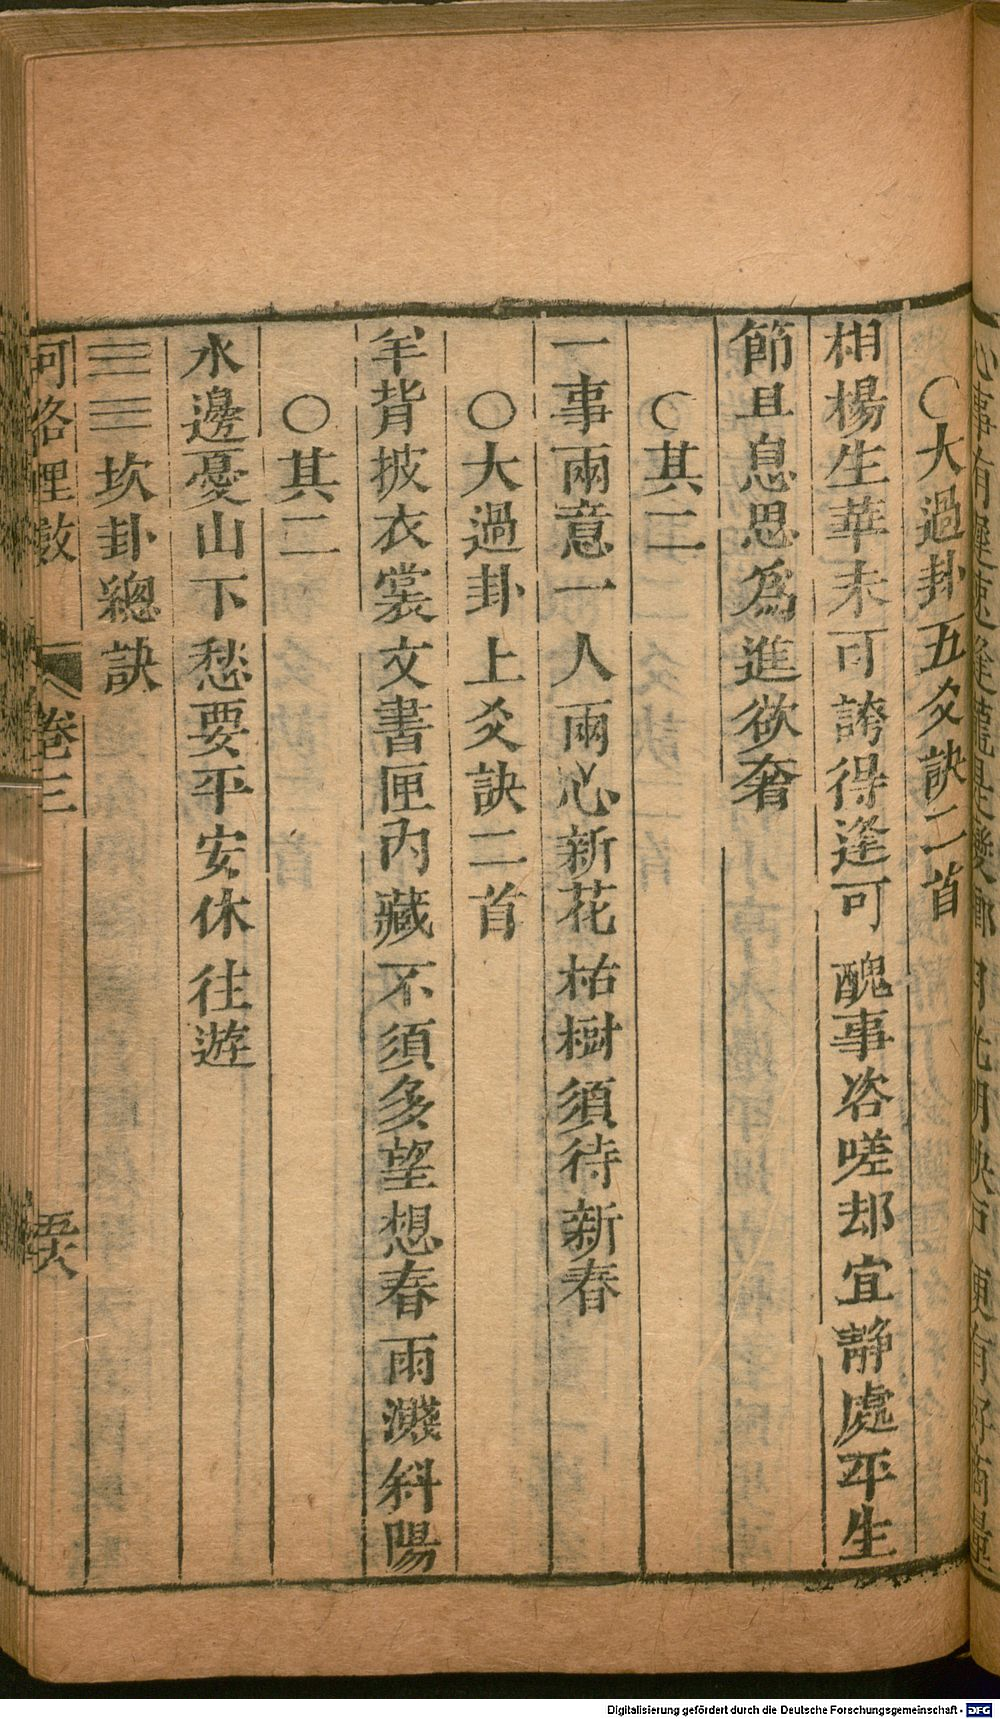 ○大過卦五爻訣二首
相楊生華未可誇得逢可醜事咨嗟却宜靜處平生
節且息思爲進欲奢
○其二
一事兩意一人兩心新花枯樹須待新春
○大過卦上爻訣二首
羊背披衣裳文書匣內藏不須多望想春雨濺斜陽
○其二
水邊憂山下愁要平安休往遊
☵☵坎卦總訣
河洛理數 卷三 五六
Digitalisierung gefördert durch die Deutsche Forschungsgemeinschaft - DFG